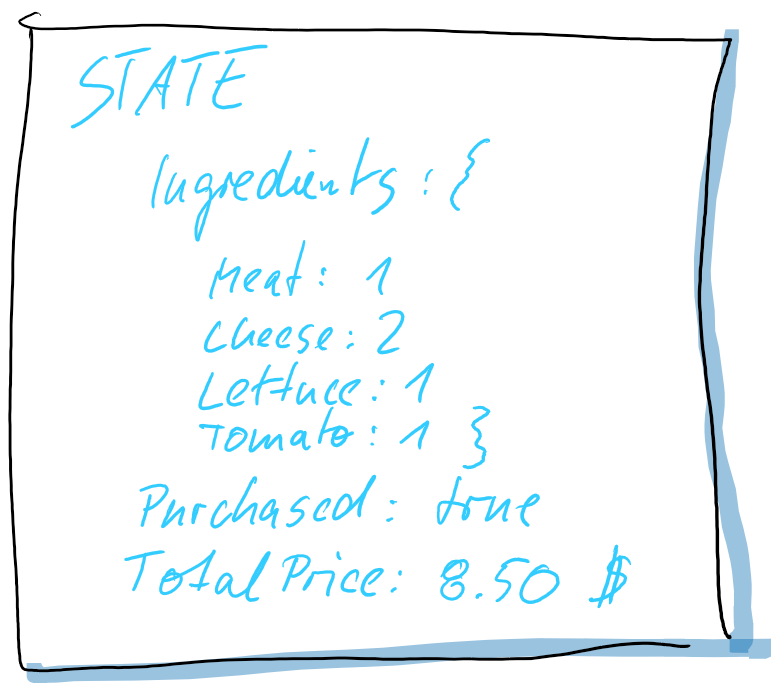 STATE
Ingredients : {
Meat : 1
Cheese : 2
Lettuce : 1
Tomato : 1 }
Purchased : true
Total Price : 8.50 $